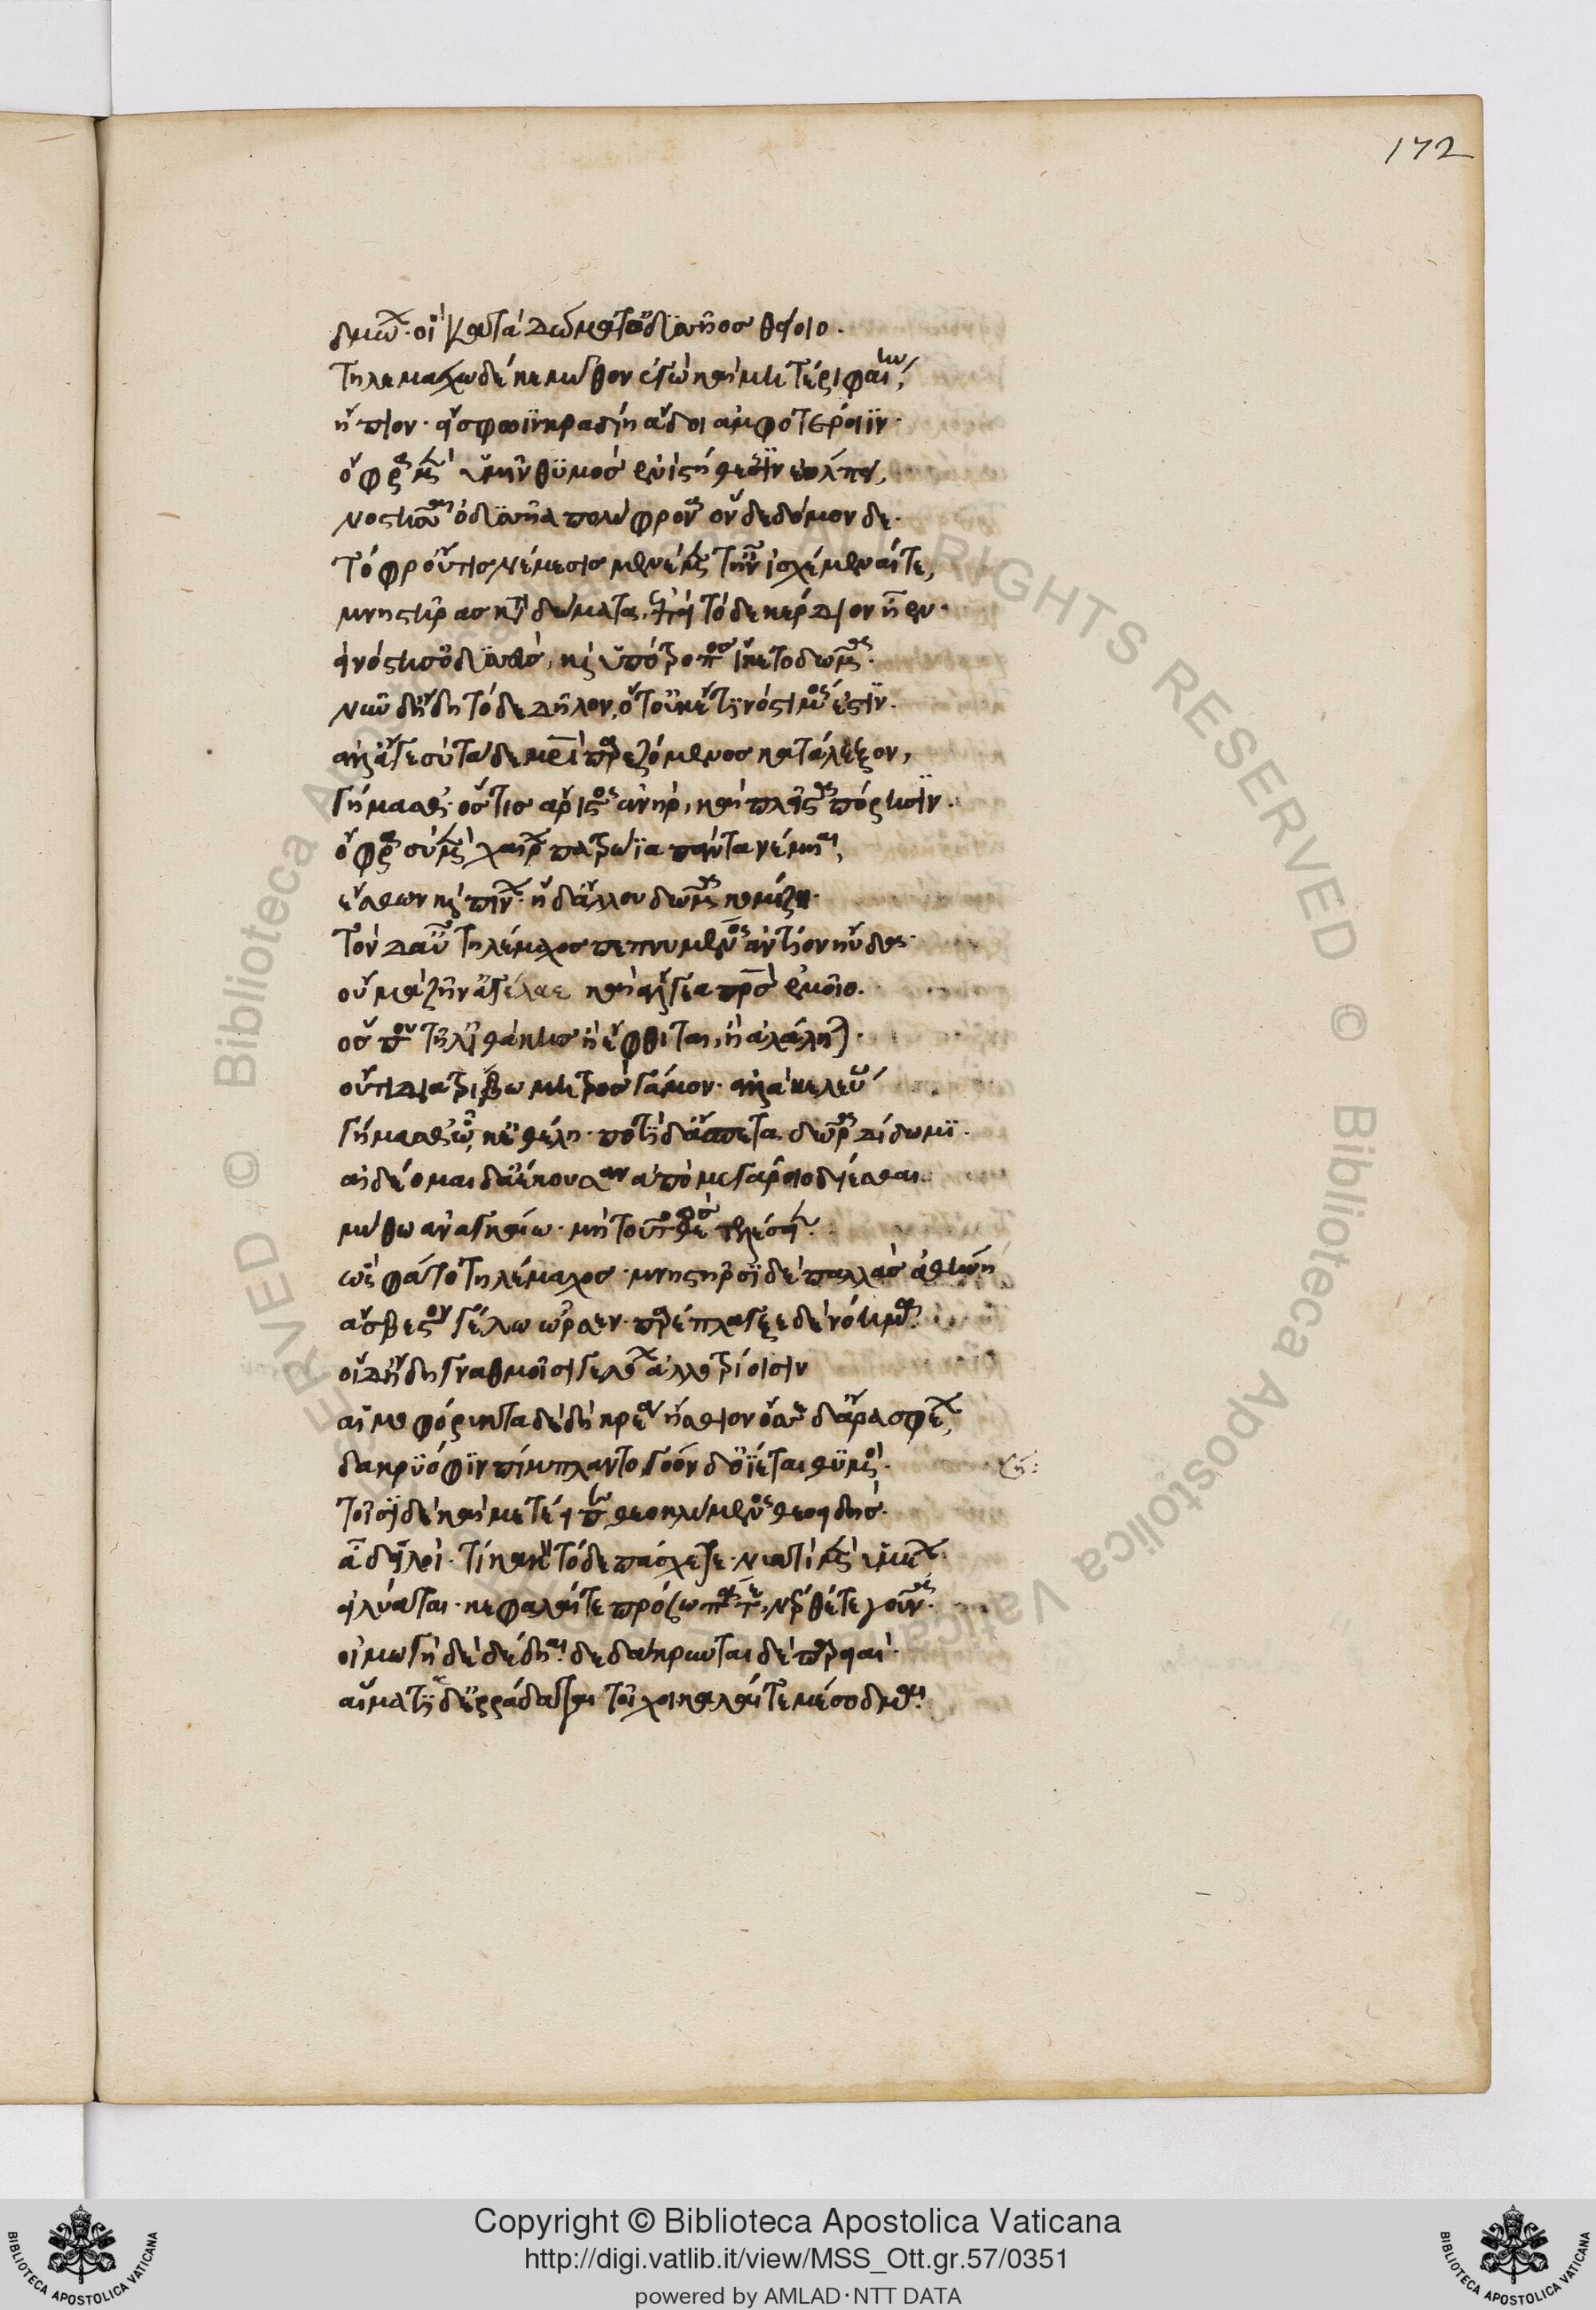 δμώων· οἳ κατὰ δώματ' ὀδυσσῆος θείοιο.
τηλεμάχω δέ κε μῦθον ἐγὼ καὶ μητέρι φαίην,
ἤπιον· εἴ σφωϊν κραδίη ἄδοι ἀμφοτέροιϊν.
ὄφρα μὲν ὑμῖν θυμὸς ἐνὶ στήθεσσιν ἐώλπει,
νοστήσειν ὀδυσσῆα πολύφρονα ὅνδε δόμονδε.
τόφρ' οὔτις νέμεσις μενέμεν τ' ἦν ἰσχέμεναί τε,
μνηστῆρας κατὰ δώματα, ἐπεὶ τόδε κέρδιον ἦεν.
εἰ νόστησ' ὀδυσσεύς, καὶ ὑπότροπος ἵκετο δῶμα.
νῦν δ' ἤδη τόδε δῆλον, ὅτ' οὐκέτι νόστιμός ἐστιν.
ἀλλ' ἄγε σῆ τάδε μητρὶ παρεζόμενος κατάλεξον,
γήμασθ' ὅστις ἄριστος ἀνὴρ, καὶ πλεῖστα πόρησιν.
ὄφρα σὺ μὲν χαίρων πατρώϊα πάντα νέμηαι,
ἔσθων καὶ πίνων· ἡ δ' ἄλλου δῶμα κομίζη.
τὸν δ' αὖ τηλέμαχος πεπνυμένος ἀντίον ηὔδα.
οὐ μὰ ζῆν' ἀγέλαε καὶ ἄλγεα πατρὸς ἐμοῖο.
ὅς που τῆλ' ἰθάκης ἢ ἔφθιται, ἢ ἀλάληται.
οὔτι διατρίβω μητρὸς γάμον· ἀλλὰ κελεύω
γήμασθ' ᾧ κ' ἐθέλη· ποτὶ δ' ἄσπετα δῶρα δίδωμι.
αἰδέομαι δ' ἀέκουσαν ἀπὸ μεγάροιο δίεσθαι
μύθω ἀναγκαίω· μὴ τοῦτο θεὸς τελέσειεν.
ὣς φάτο τηλέμαχος· μνηστῆρσι δὲ παλλὰς ἀθήνη
ἄσβεστον γέλω ὦρσεν· παρέπλαγξε δὲ νόημα.
οἱ δ' ἤδη γναθμοῖσι γελοίων ἀλλοτρίοισιν
αἱμοφόρυκτα δὲ δὴ κρέα ἤσθιον ὄσσε δ' ἄρα σφέων,
δακρυόφιν πίμπλαντο, γόον δ' ὠΐετο θυμός.
τοῖσι δὲ καὶ μετέειπε θεοκλύμενος θεοειδής.
ἆ δειλοί· τί κακὸν τόδε πάσχετε· νυκτὶ μὲν ὑμέων
εἰλύαται· κεφαλαί τε πρόσωπά τε, νέρθέ τε γοῦνα.
οἰμωγὴ δὲ δέδηε· δεδάκρυνται δὲ παρειαί.
αἵματι δ' ἐρράδαται τοῖχοι καλαί τε μεσόδμαι.
172
Copyright © Biblioteca Apostolica Vaticana
http://digi.vatlib.it/view/MSS_Ott.gr.57/0351
powered by AMLAD·NTT DATA